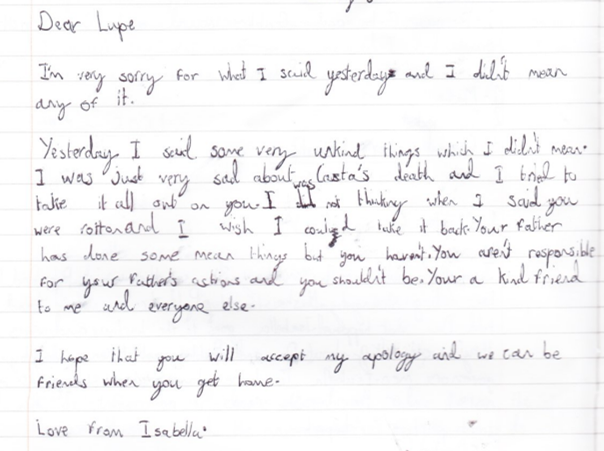 Dear Lupe
I'm very sorry for what I said yesterday and I didn't mean
any of it.
Yesterday I said some very unkind things which I didn't mean.
I was just very sad about Casta's death and I tried to
take it all out on you. I was not thinking when I said you
were rotton and I wish I could take it back. Your father
has done some mean things but you haven't. You aren't responsible
for your father's actions and you shouldn't be. Your a kind friend
to me and everyone else.
I hope that you will accept my apology and we can be
friends when you get home.
Love from Isabella.